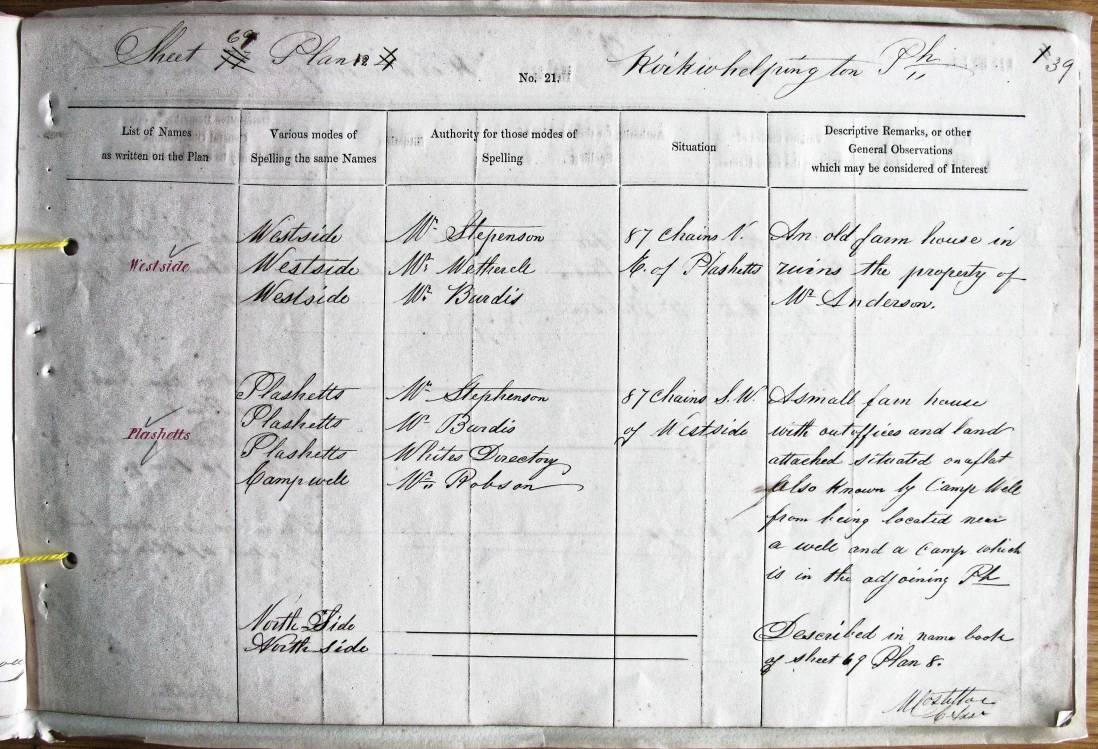 Sheet 69 Plan 12 Kirkwhelpington Ph 39
No. 21.
List of Names
as written on the Plan
Various modes of
Spelling the same Names
Authority for those modes of
Spelling
Situation
Descriptive Remarks, or other
General Observations
which may be considered of Interest
Westside
Westside
Westside
Westside
Mr. Stepenson
Mr. Wetherell
Mr. Burdis
87 Chains N.
E. of Plashetts
An old farm house in
ruins the property of
Mr. Anderson.
Plashetts
Plashetts
Plashetts
Plashetts
Camp well
Mr. Stephenson
Mr. Burdis
Whites Directory
Robson
87 Chains S.W.
of Westside
A small farm house
with outoffices and land
attached situated on a flat
Also known by Camp Well
from being located near
a well and a Camp which
is in the adjoining Ph
North Side
North side
Described in name book
of sheet 69 Plan 8.